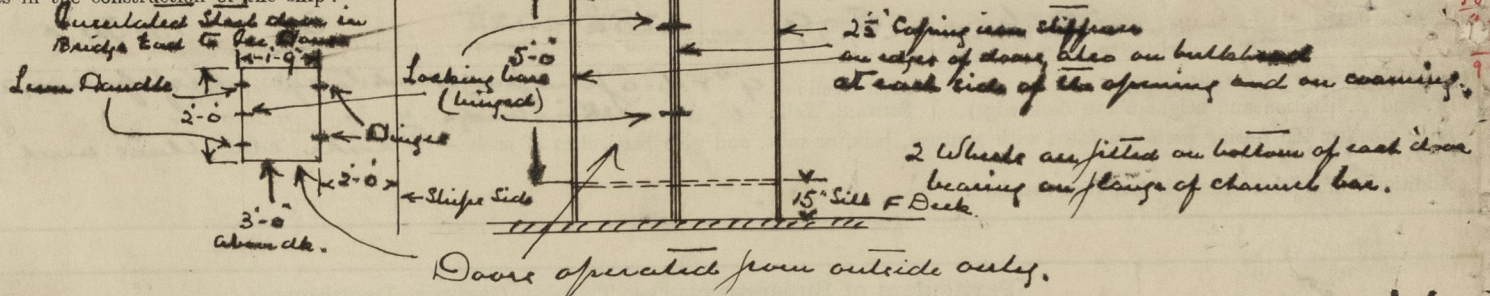 s in the construction of the ship.
Insulated Steel door in
Bridge End to
1'-9"
Lever Handle
2'-0"
Hinges
2'-0"
3'-0"
above dk.
Ships Side
5'-0"
Locking bars
(hinged)
2½" Coping iron stiffeners
on edges of doors, also on bulkhead
at each side of the opening and on coaming.
2 Wheels are fitted on bottom of each door
bearing on flange of channel bar.
15" Sill F Deck.
Doors operated from outside only.